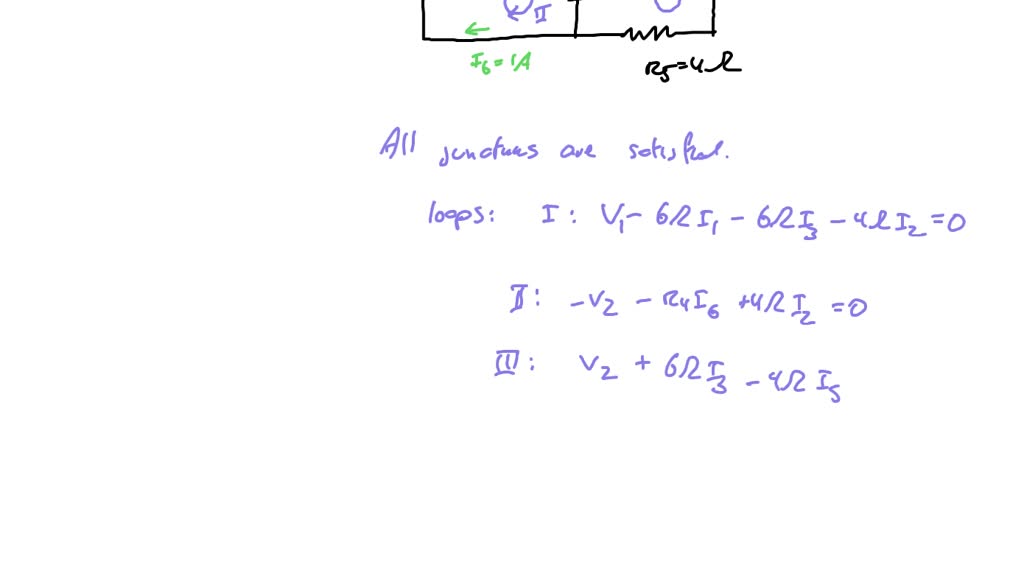 II
I₆ = 1A
R₅=4Ω
All junctions are satisfied.
loops: I: V₁ - 6Ω I₁ - 6Ω I₃ - 4Ω I₂ = 0
II: -V₂ - R₄I₆ +4Ω I₂ = 0
III: V₂ + 6Ω I₃ - 4Ω I₅